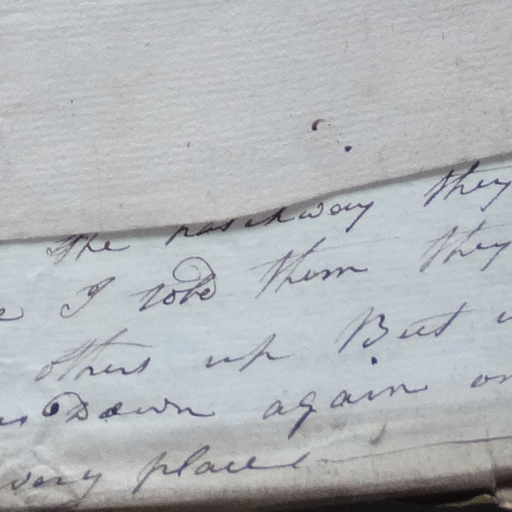 the passway they
I told them they
others up But
Down again on
very place